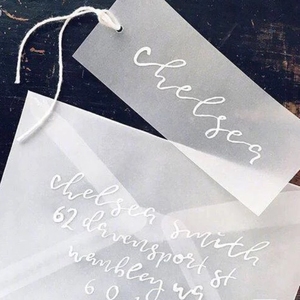 chelsea
chelsea smith
62 davensport st
wembley wa
6 0